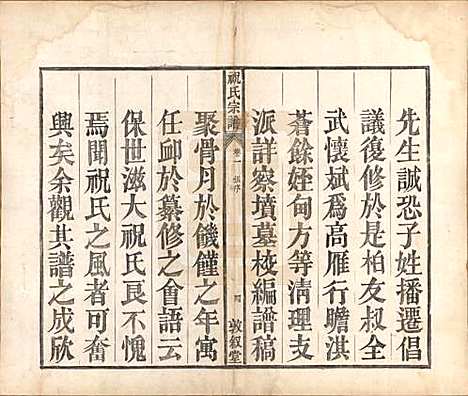 先生誠恐子姓播遷倡
議復修於是柏友叔全
武懷斌爲高雁行瞻淇
蒼餘姪甸方等清理支
派詳察墳墓校編譜稿
祝氏宗譜
卷一
四
敦叙堂
聚骨月於饑饉之年寓
任卹於纂修之會語云
保世滋大祝氏良不愧
焉聞祝氏之風者可奮
興矣余觀其譜之成欣